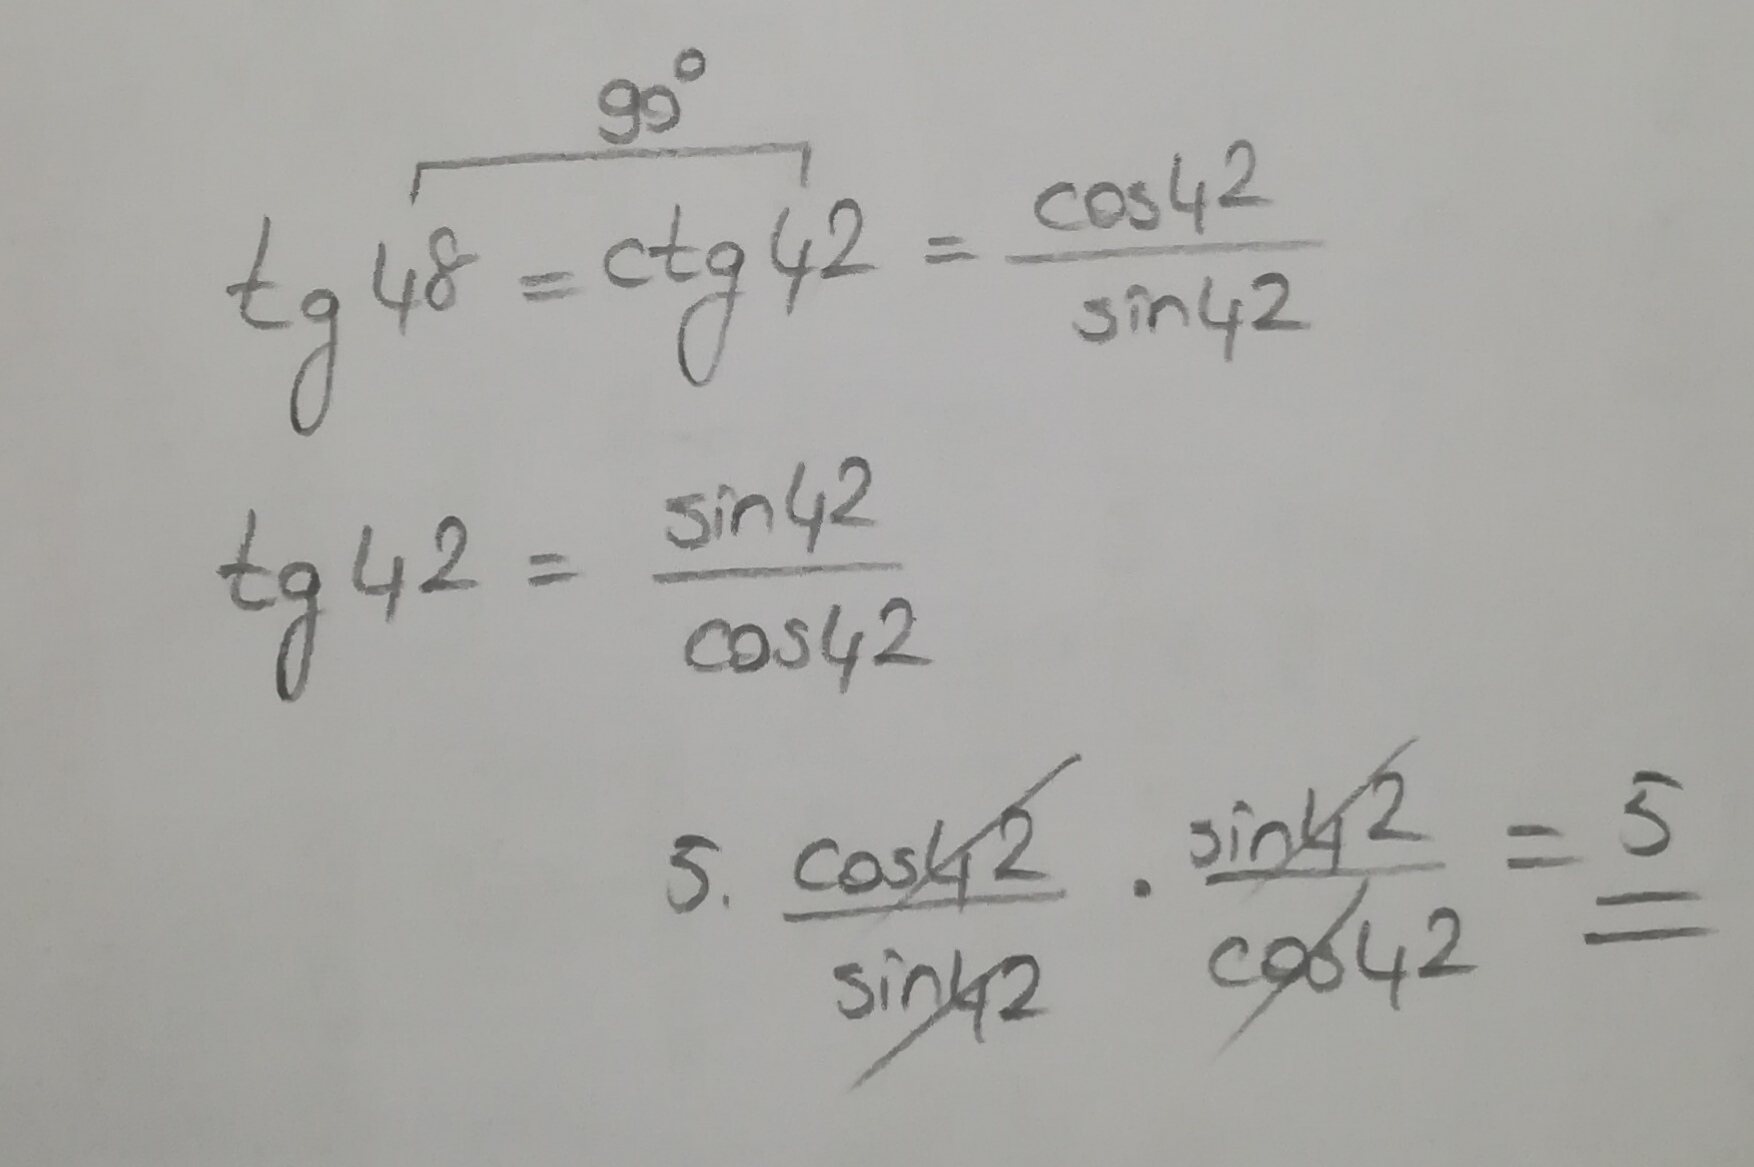 90°
tg 48 = ctg 42 = cos42 / sin42
tg 42 = sin42 / cos42
5. cos42 / sin42 . sin42 / cos42 = 5